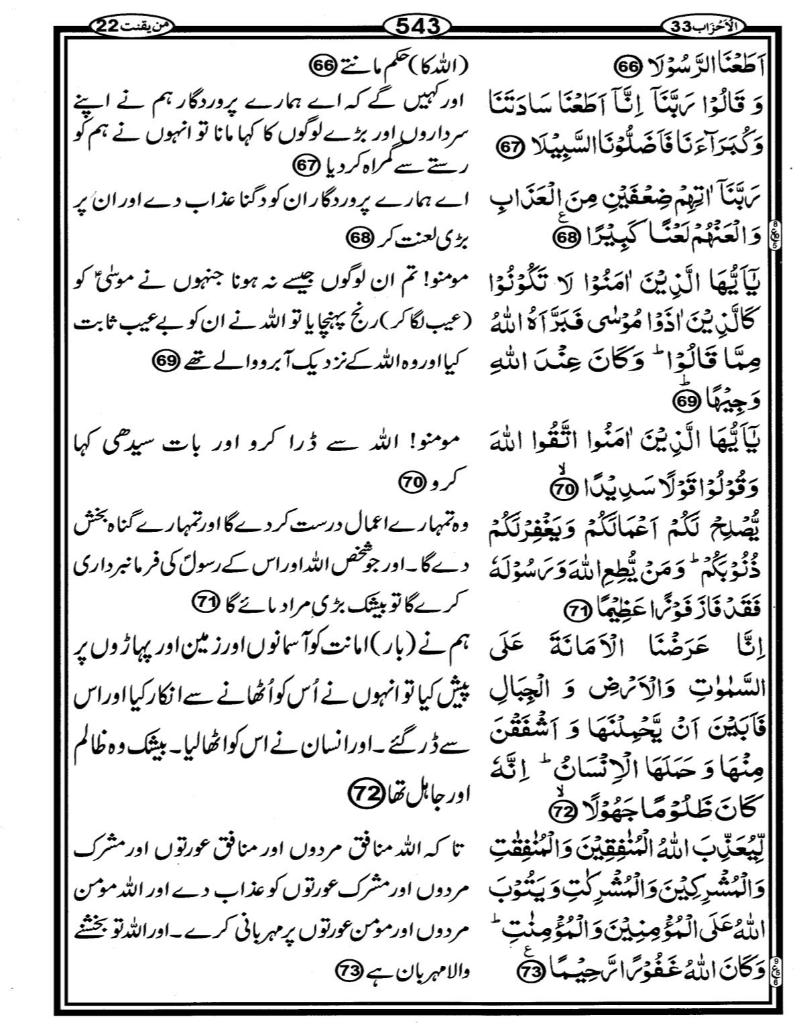 الْاَحْزَاب 33
543
من یقنت 22
اَطَعْنَا الرَّسُوْلَا 66
وَ قَالُوْا رَبَّنَآ اِنَّآ اَطَعْنَا سَادَتَنَا
وَكُبَرَآءَنَا فَاَضَلُّوْنَا السَّبِيْلَا 67
رَبَّنَآ اٰتِهِمْ ضِعْفَيْنِ مِنَ الْعَذَابِ
وَالْعَنْهُمْ لَعْنًا كَبِيْرًا 68 ع
يٰٓاَيُّهَا الَّذِيْنَ اٰمَنُوْا لَا تَكُوْنُوْا
كَالَّذِيْنَ اٰذَوْا مُوْسٰى فَبَرَّاَهُ اللّٰهُ
مِمَّا قَالُوْا ؕ وَكَانَ عِنْدَ اللّٰهِ
وَجِيْهًا ؕ 69
يٰٓاَيُّهَا الَّذِيْنَ اٰمَنُوا اتَّقُوا اللّٰهَ
وَقُوْلُوْا قَوْلًا سَدِيْدًا ۙ 70
يُّصْلِحْ لَكُمْ اَعْمَالَكُمْ وَيَغْفِرْ لَكُمْ
ذُنُوْبَكُمْ ؕ وَمَنْ يُّطِعِ اللّٰهَ وَرَسُوْلَهٗ
فَقَدْ فَازَ فَوْزًا عَظِيْمًا 71
اِنَّا عَرَضْنَا الْاَمَانَةَ عَلَى
السَّمٰوٰتِ وَالْاَرْضِ وَ الْجِبَالِ
فَاَبَيْنَ اَنْ يَّحْمِلْنَهَا وَ اَشْفَقْنَ
مِنْهَا وَ حَمَلَهَا الْاِنْسَانُ ؕ اِنَّهٗ
كَانَ ظَلُوْمًا جَهُوْلًا ۙ 72
لِّيُعَذِّبَ اللّٰهُ الْمُنٰفِقِيْنَ وَالْمُنٰفِقٰتِ
وَالْمُشْرِكِيْنَ وَالْمُشْرِكٰتِ وَيَتُوْبَ
اللّٰهُ عَلَى الْمُؤْمِنِيْنَ وَالْمُؤْمِنٰتِ ؕ
وَكَانَ اللّٰهُ غَفُوْرًا رَّحِيْمًا 73 ع
(اللہ کا) حکم مانتے 66
اور کہیں گے کہ اے ہمارے پروردگار ہم نے اپنے
سرداروں اور بڑے لوگوں کا کہا مانا تو انہوں نے ہم کو
رستے سے گمراہ کر دیا 67
اے ہمارے پروردگار ان کو دگنا عذاب دے اور ان پر
بڑی لعنت کر 68
مومنو! تم ان لوگوں جیسے نہ ہونا جنہوں نے موسیٰؑ کو
(عیب لگا کر) رنج پہنچایا تو اللہ نے ان کو بے عیب ثابت
کیا اور وہ اللہ کے نزدیک آبرو والے تھے 69
مومنو! اللہ سے ڈرا کرو اور بات سیدھی کہا
کرو 70
وہ تمہارے اعمال درست کر دے گا اور تمہارے گناہ بخش
دے گا۔ اور جو شخص اللہ اور اس کے رسولؐ کی فرمانبرداری
کرے گا تو بیشک بڑی مراد پائے گا 71
ہم نے (بار) امانت کو آسمانوں اور زمین اور پہاڑوں پر
پیش کیا تو انہوں نے اُس کو اُٹھانے سے انکار کیا اور اس
سے ڈر گئے۔ اور انسان نے اس کو اٹھا لیا۔ بیشک وہ ظالم
اور جاہل تھا 72
تا کہ اللہ منافق مردوں اور منافق عورتوں اور مشرک
مردوں اور مشرک عورتوں کو عذاب دے اور اللہ مومن
مردوں اور مومن عورتوں پر مہربانی کرے۔ اور اللہ تو بخشنے
والا مہربان ہے 73